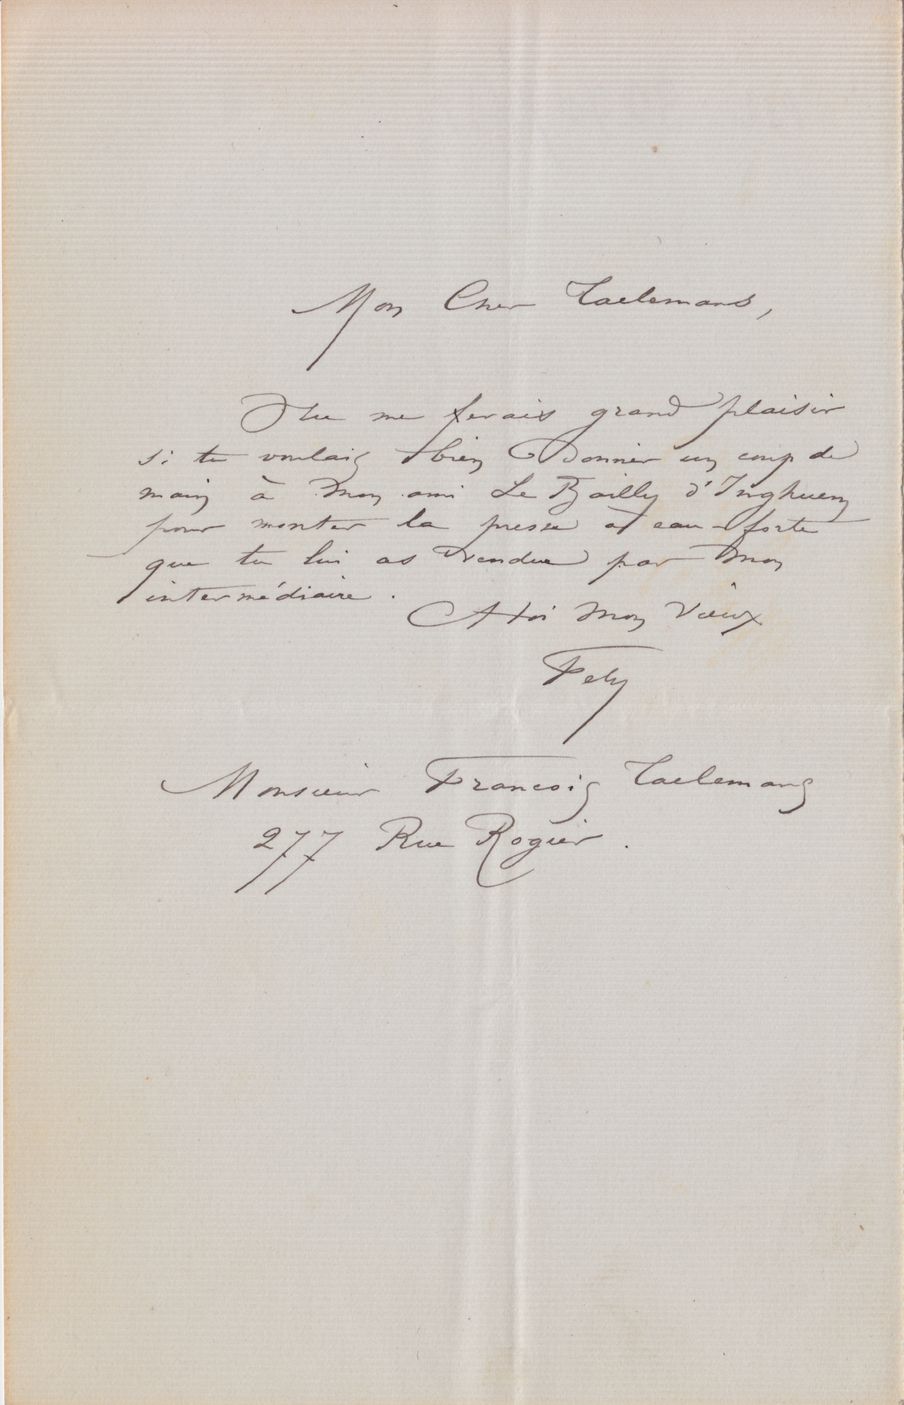 Mon Cher Taelemans,
Tu me ferais grand plaisir
si tu voulais bien donner un coup de
main à mon ami Le Bailly d'Inghuem
pour monter la presse à eau-forte
que tu lui as vendue par mon
intermédiaire.
A toi mon vieux
Fély
Monsieur François Taelemans
277 Rue Rogier.